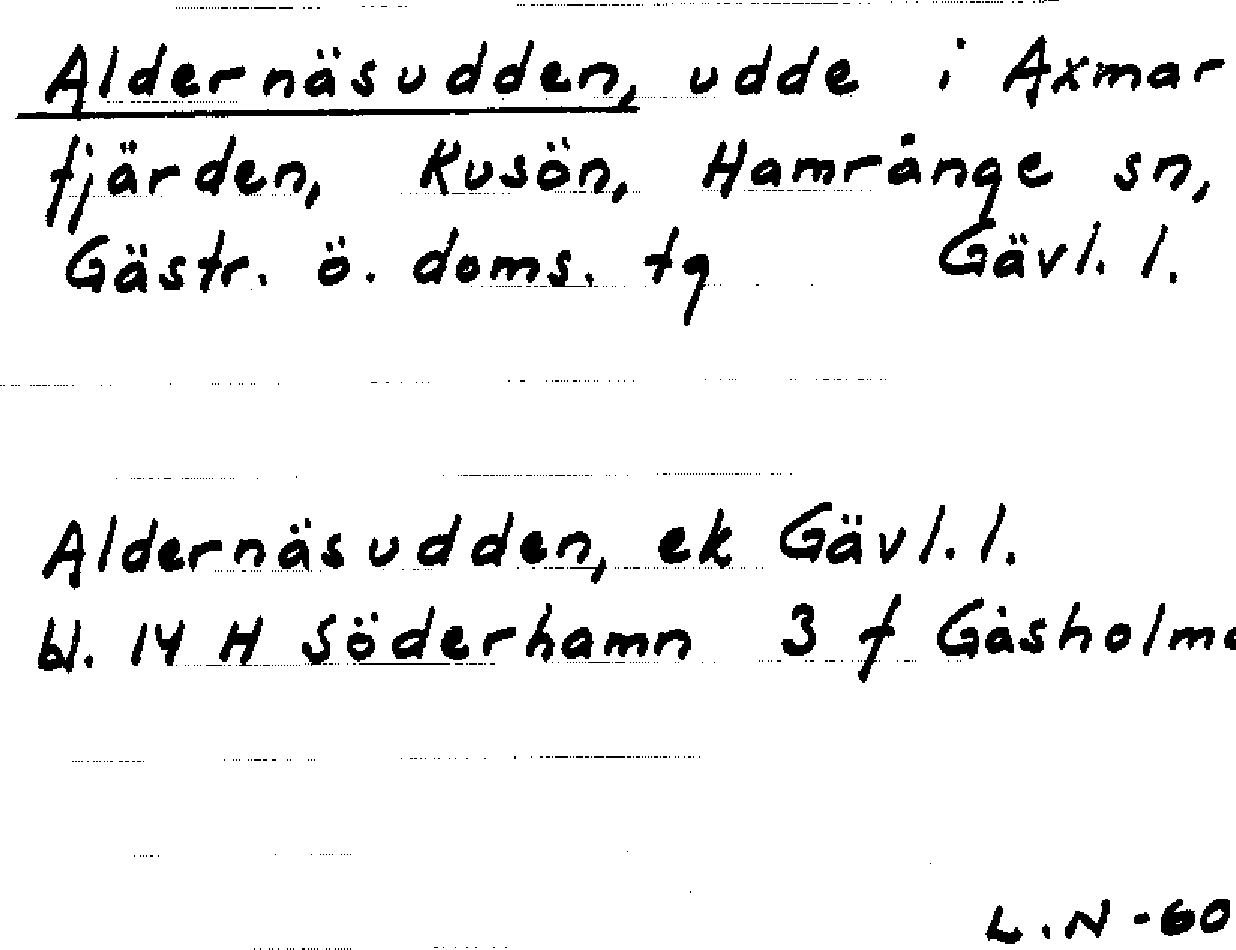 Aldernäsudden, udde i Axmar
fjärden, Kusön, Hamrånge sn,
Gästr. ö. doms. tg Gävl. l.
Aldernäsudden, ek Gävl. l.
bl. 14 H Söderhamn 3 f Gåsholma
L.N -60